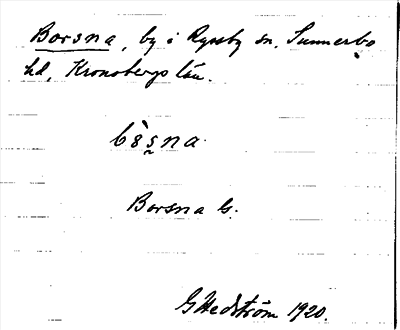 Borsna, by i Ryssby sn, Sunnerbo
hd, Kronobergs län.
bòs̰na.
Borsna G.
G Hedström 1920.